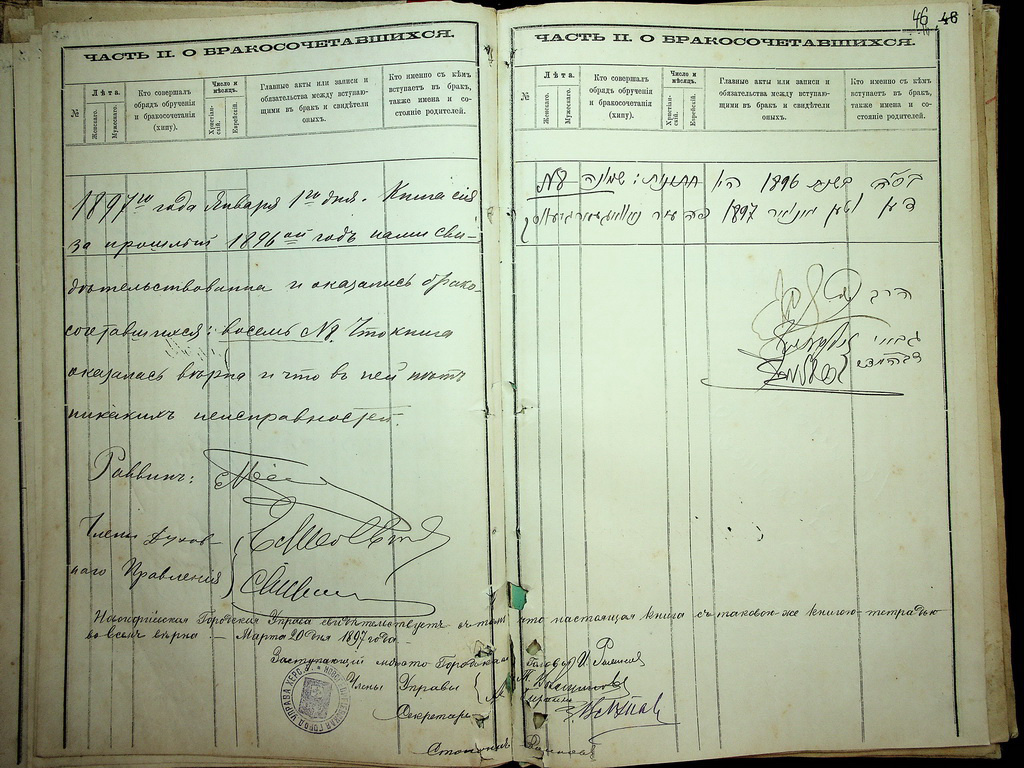 ЧАСТЬ II. О БРАКОСОЧЕТАВШИХСЯ.
№
Лѣта.
Женскаго.
Мужескаго.
Кто совершалъ обрядъ обрученія и бракосочетанія (хипу).
Число и мѣсяцъ.
Христіанскій.
Еврейскій.
Главные акты или записи и обязательства между вступающими въ бракъ и свидѣтели оныхъ.
Кто именно съ кѣмъ вступаетъ въ бракъ, также имена и состояніе родителей.
1897го года Января 1го дня. Книга сія
за прошлый 1896ой годъ нами сви-
дѣтельствованна и оказались брако-
сочетавшихся: восемь №8. Что книга
оказалась вѣрна и что въ ней нѣтъ
никакихъ неисправностей.
Раввинъ:
Члены Духов-
наго Правленія
46 46
ЧАСТЬ II. О БРАКОСОЧЕТАВШИХСЯ.
№
Лѣта.
Женскаго.
Мужескаго.
Кто совершалъ обрядъ обрученія и бракосочетанія (хипу).
Число и мѣсяцъ.
Христіанскій.
Еврейскій.
Главные акты или записи и обязательства между вступающими въ бракъ и свидѣтели оныхъ.
Кто именно съ кѣмъ вступаетъ въ бракъ, также имена и состояніе родителей.
בסה בשנת 1896 היו חתונות: שמונה №8
דען יטען יאנואר 1897 פה עיר
הרב
גבויי
דבהמדש
Городская Управа свидѣтельствуетъ въ томъ что настоящая книга съ таковою же книгою-тетрадью
во всемъ вѣрна Марта 20 дня 1897 года
Заступающій мѣсто Городскаго Головы
Члены Управы
Секретарь